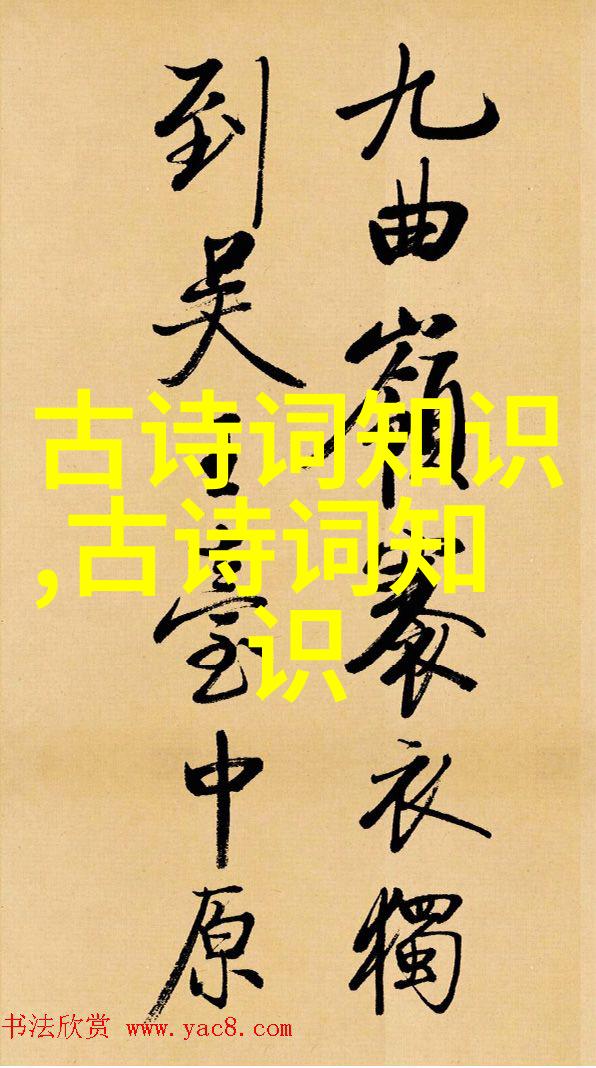 九曲嶺褰衣獨
到吳王臺中原
古诗词知识
,古诗词知
识
书法欣赏 www.yac8.com